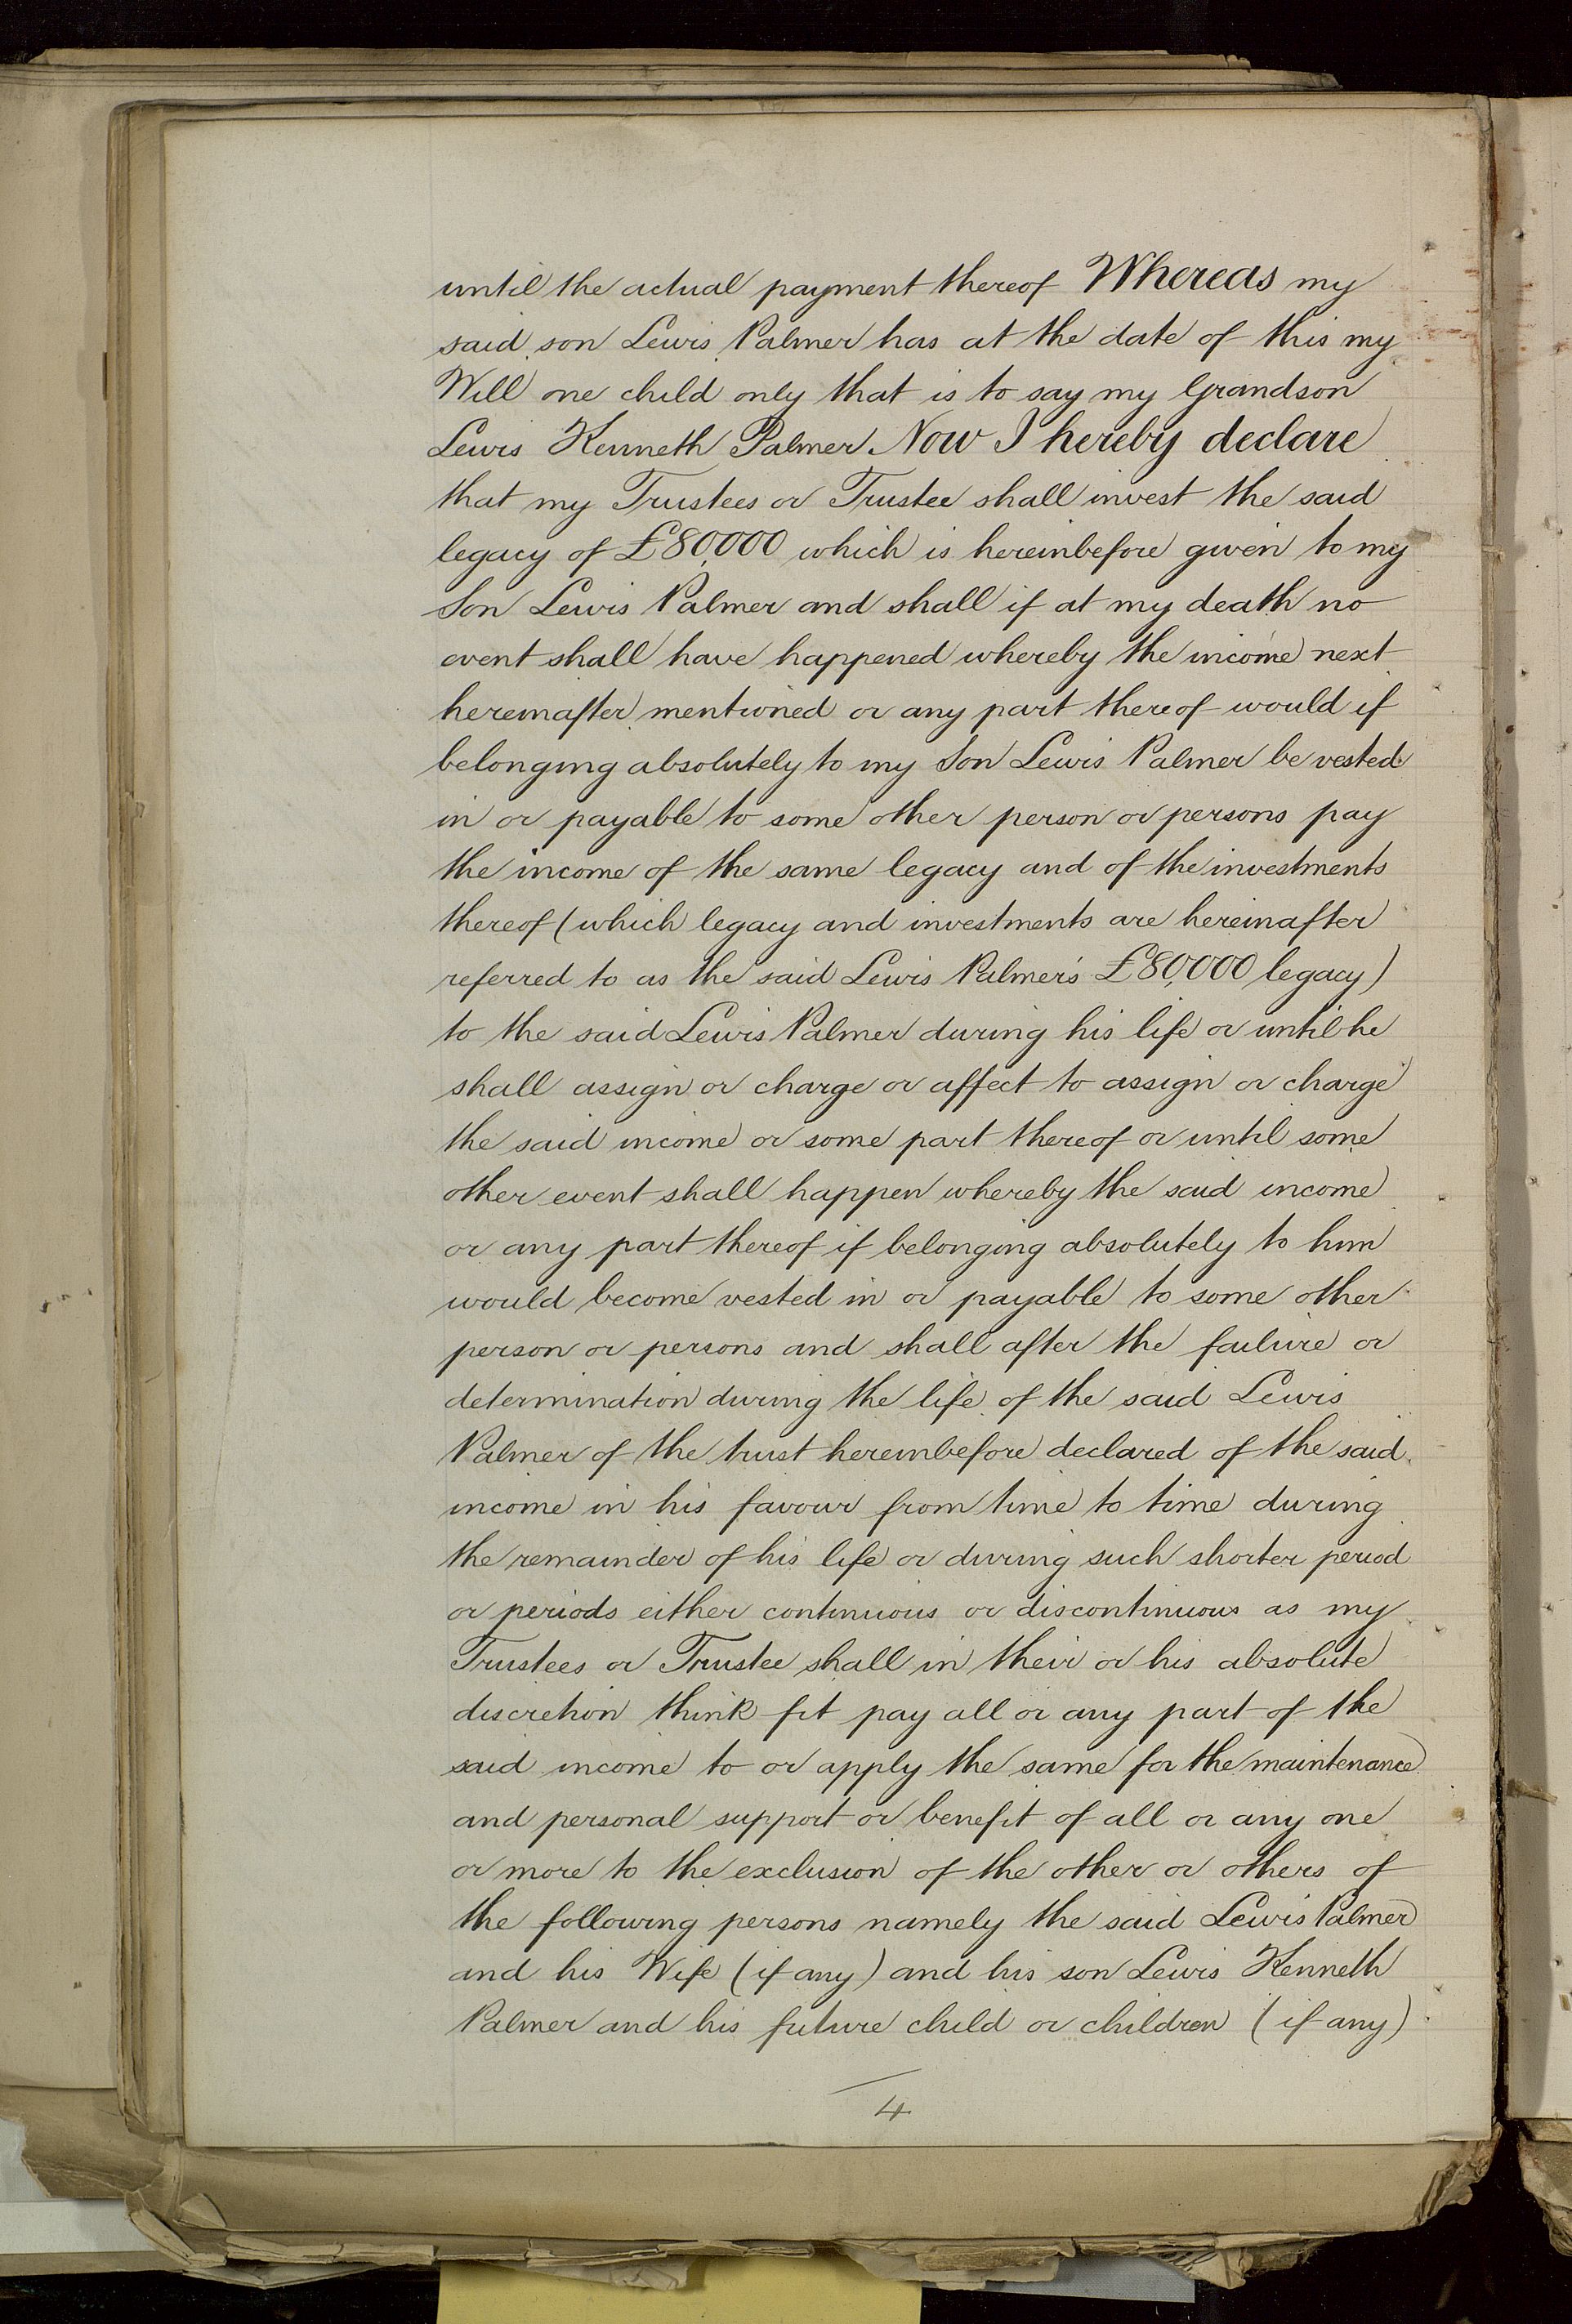 until the actual payment thereof Whereas my
said son Lewis Palmer has at the date of this my
Will one child only that is to say my Grandson
Lewis Kenneth Palmer Now I hereby declare
that my Trustees or Trustee shall invest the said
legacy of £80,000 which is hereinbefore given to my
Son Lewis Palmer and shall if at my death no
event shall have happened whereby the income next
hereinafter mentioned or any part thereof would if
belonging absolutely to my Son Lewis Palmer be vested
in or payable to some other person or persons pay
the income of the same legacy and of the investments
thereof (which legacy and investments are hereinafter
referred to as the said Lewis Palmer's £80,000 legacy)
to the said Lewis Palmer during his life or until he
shall assign or charge or affect to assign or charge
the said income or some part thereof or until some
other event shall happen whereby the said income
or any part thereof if belonging absolutely to him
would become vested in or payable to some other
person or persons and shall after the failure or
determination during the life of the said Lewis
Palmer of the trust hereinbefore declared of the said
income in his favour from time to time during
the remainder of his life or during such shorter period
or periods either continuous or discontinuous as my
Trustees or Trustee shall in their or his absolute
discretion think fit pay all or any part of the
said income to or apply the same for the maintenance
and personal support or benefit of all or any one
or more to the exclusion of the other or others of
the following persons namely the said Lewis Palmer
and his Wife (if any) and his son Lewis Kenneth
Palmer and his future child or children (if any)
4